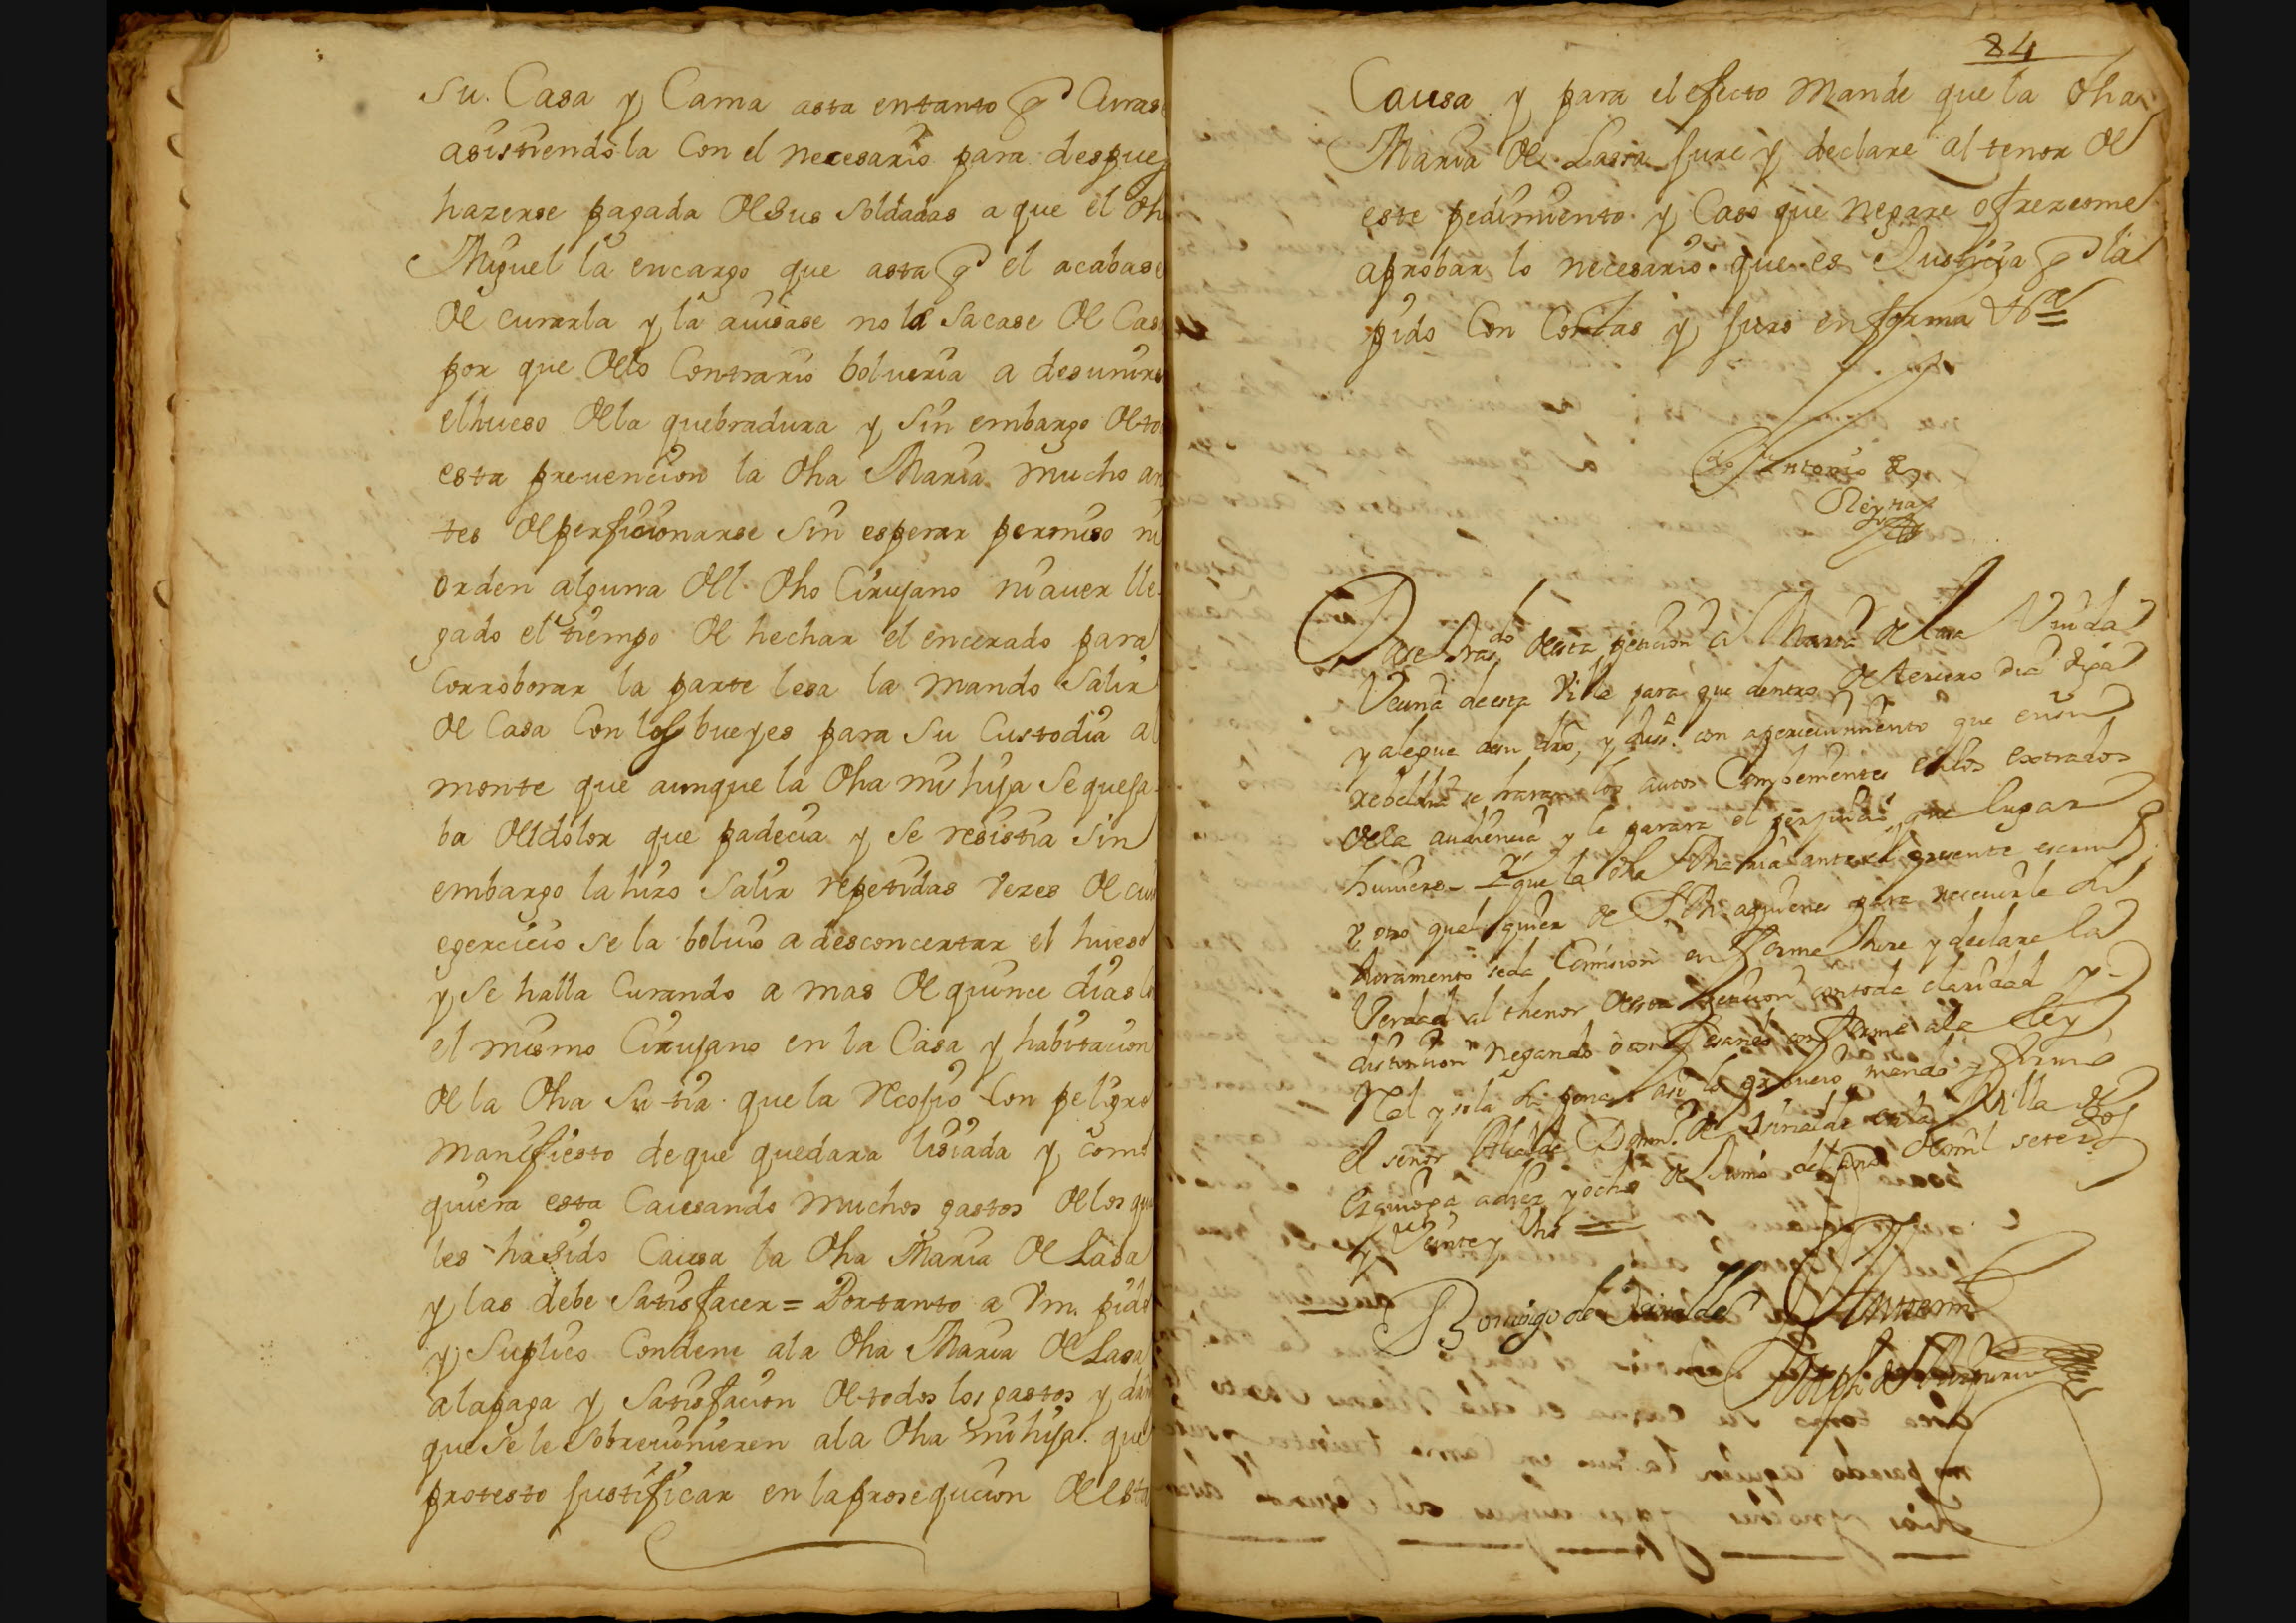 Su. Casa y Cama asta entanto q̃ Curase
asistiendola Con el necesario para despues
hazerse pagada de sus Soldadas a que el dho
Miguel la encargo que asta q̃ el acabase
de curarla y la auisase no la Sacase de Cas
por que de lo Contrario bolueria a desunirse
el hueso de la quebradura y Sin embargo de to
esta preuencion la dha Maria mucho an
tes de perficionarse Sin esperar permiso ni
orden alguna del dho Cirujano ni auer lle
gado el tiempo de hechar el encerado para
Corroborar la parte lesa la mando Salir
de Casa Con los bueyes para Su Custodia al
monte que aunque la dha mi hija Se queja
ba del dolor que padecia y Se resistia Sin
embargo la hizo Salir repetidas Vezes de cui
egercicio Se la boluio a desconcertar el hueso
y Se halla Curando a mas de quince dias
el mismo Cirujano en la Casa y habitacion
de la dha Su tia que la Recojio Con peligro
manifiesto de que quedara lisiada y como
quiera esta Causando muchos gastos de los qua
les ha Sido Causa la dha Maria de Lasa
y las debe Satisfacer = Por tanto a Vm. pido
y Suplico Condene ala dha Maria de Lasa
alapaga y Satisfacion de todos los gastos y da
que Se le Sobreuinieren ala dha mi hija que
protesto justificar en la prosequcion de esta
84
Causa y para el efecto Mande que la dha
Maria de Lasa jure y declare al tenor de
este pedimiento y Caso que negare ofrezcome
aprobar lo necesario que es Justicia q̃ la
pido Con Costas y juro en forma &a
Antonio de
Reyna
Dase tras.do desta peticion a Maria de Lasa Viuda
Vecina de esta Villa para que dentro de tercero dia diga
y alegue de su dro, y Jus.a con aperciuimiento que en su
rebeldia se haran los autos Combenientes en los extrados
de la audiencia y le parara el perjuicio que lugar
huuiere = Y que la dha Maria ante el presente escriu
v otro qualquier de S. M. aquienes para reciuirle el
Juramento se da Comision en forma Jure y declare la
Verdad al thenor desta peticion con toda claridad y
distincion negando o confesando conforme ala ley
Real y so la de pena asi lo proueio mando y firmo
el señor Alcalde Domingo de Irinalde en la Villa de
a diez y ocho de Junio del año de mil setez.os
y Veinte y Vno =
Domingo de Irinalde
Antemi
Joseph de